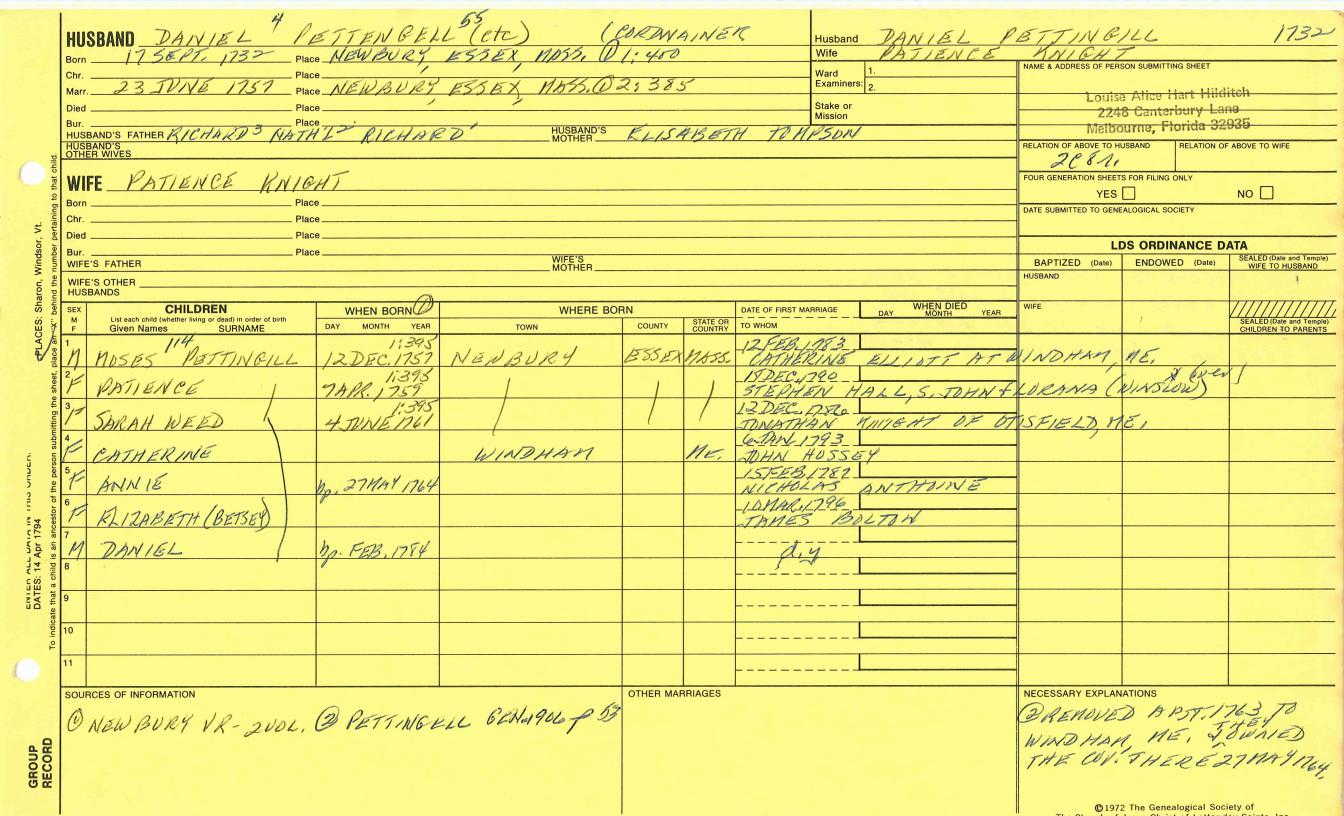 HUSBAND DANIEL 4 PETTENGELL 55 (etc) (CORDWAINER
Born 17 SEPT. 1732 Place NEWBURY, ESSEX, MASS. ① 1:400
Chr. Place
Marr. 23 JUNE 1757 Place NEWBURY, ESSEX, MASS. ① 2:385
Died Place
Bur. Place
HUSBAND'S FATHER RICHARD 3 NATH'L 2 RICHARD 1 HUSBAND'S MOTHER ELISABETH TOMPSON
HUSBAND'S OTHER WIVES
Husband DANIEL PETTINGILL 1732
Wife PATIENCE KNIGHT
Ward Examiners: 1.
2.
Stake or Mission
NAME & ADDRESS OF PERSON SUBMITTING SHEET
Louise Alice Hart Hilditch
2248 Canterbury Lane
Melbourne, Florida 32935
RELATION OF ABOVE TO HUSBAND RELATION OF ABOVE TO WIFE
2C8r.
FOUR GENERATION SHEETS FOR FILING ONLY
YES NO
DATE SUBMITTED TO GENEALOGICAL SOCIETY
WIFE PATIENCE KNIGHT
Born Place
Chr. Place
Died Place
Bur. Place
WIFE'S FATHER WIFE'S MOTHER
WIFE'S OTHER HUSBANDS
LDS ORDINANCE DATA
BAPTIZED (Date) ENDOWED (Date) SEALED (Date and Temple) WIFE TO HUSBAND
HUSBAND
WIFE
SEALED (Date and Temple) CHILDREN TO PARENTS
SEX M F CHILDREN WHEN BORN ① WHERE BORN DATE OF FIRST MARRIAGE WHEN DIED
List each child (whether living or dead) in order of birth
Given Names SURNAME DAY MONTH YEAR TOWN COUNTY STATE OR COUNTRY TO WHOM DAY MONTH YEAR
1 114 1:395 12 FEB. 1783
M MOSES PETTINGILL 12 DEC. 1757 NEWBURY ESSEX MASS. CATHERINE ELLIOTT AT WINDHAM, ME.
2 1:395 DEC. 1790
F PATIENCE 7 APR. 1759 STEPHEN HALL, S. JOHN + LORANA (WINSLOW)
3 1:395 DEC.
F SARAH WEED 4 JUNE 1761 JONATHAN KNIGHT OF OTISFIELD, ME.
4 6 JAN. 1793
F CATHERINE WINDHAM ME. JOHN HOSSEY
5 15 FEB. 1787
F ANNIE bp. 27 MAY 1764 NICHOLAS ANTHOINE
6 10 MAR. 1796
F ELIZABETH (BETSEY) JAMES BOLTON
7
M DANIEL bp. FEB. 1784 d.y
8
9
10
11
SOURCES OF INFORMATION
① NEWBURY VR - 2 VOL. ② PETTINGELL GEN. 1906 p 53
OTHER MARRIAGES
NECESSARY EXPLANATIONS
② REMOVED ABT. 1763 TO
WINDHAM, ME. THEY OWNED
THE COV. THERE 27 MAY 1764.
©1972 The Genealogical Society of
PLACES: Sharon, Windsor, Vt.
DATES: 14 Apr 1794
ENTER ALL DATA IN THIS ORDER:
To indicate that a child is an ancestor of the person submitting the sheet, place an "X" behind the number pertaining to that child.
GROUP RECORD